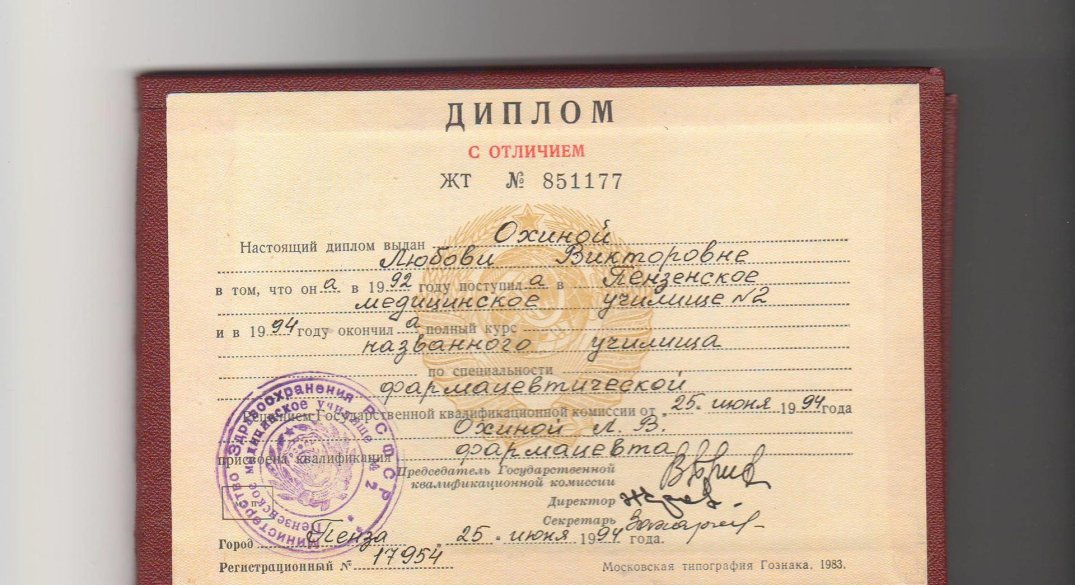 ДИПЛОМ
С ОТЛИЧИЕМ
ЖТ № 851177
Настоящий диплом выдан Охиной
Любови Викторовне
в том, что он а в 1992 году поступил а в Пензенское
медицинское училище №2
и в 1994 году окончил а полный курс
названного училища
по специальности
фармацевтической
Решением Государственной квалификационной комиссии от „25“ июня 1994 года
Охиной Л. В.
присвоена квалификация фармацевта
Председатель Государственной
квалификационной комиссии
Директор
Секретарь
Город Пенза „25“ июня 1994 года.
Регистрационный № 17954
Московская типография Гознака. 1983.
Министерство Здравоохранения РСФСР
Пензенское медицинское училище № 2